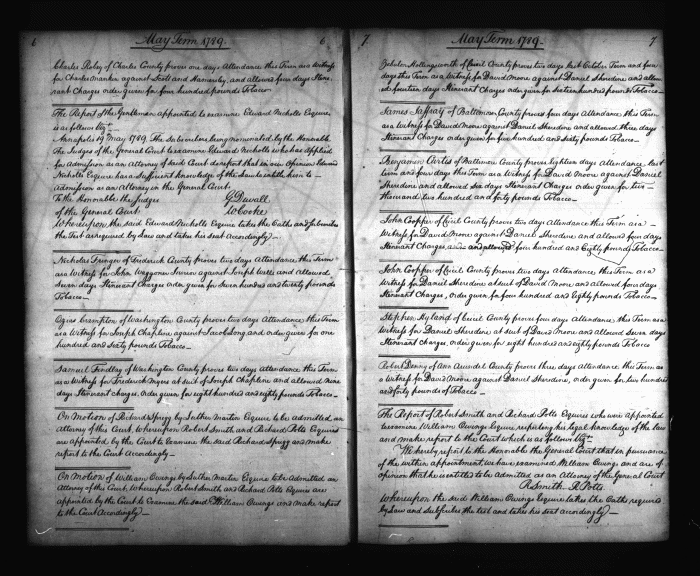 6 May Term 1789. 6
Charles Posey of Charles County proves one days Attendance this Term as Witness
for Charles Mankin against Scott and Hamersley, and allowed four days Itine
rant Charges order given for four hundred pounds Tobacco
The Report of the Gentlemen appointed to examine Edward Nicholls Esquire
is as follows Vizt.
Annapolis 19 May 1789. The Subscribers being nominated by the Honorable
The Judges of the General Court to examine Edward Nicholls who has applied
for Admission as an Attorney of said Court do report that in our Opinion Edward
Nicholls Esquire has a Sufficient knowledge of the Law to entitle him to
Admission as an Attorney in the General Court.
To the Honorable the Judges G Duvall
of the General Court. W Cooke
Whereupon the said Edward Nicholls Esquire takes the Oaths and Subscribes
the Test as required by Law and takes his seat Accordingly
Nicholas Fringer of Frederick County proves two days Attendance this Term
as a Witness for John Waggoner against Joseph Wells and Allowed
Seven days Itinerant Charges order given for Seven hundred and twenty pounds
Tobacco
Ogius Crampton of Washington County proves two days Attendance this Term
as a Witness for Joseph Chapline against Jacob Long and order given for one
hundred and Sixty pounds Tobacco
Samuel Findley of Washington County proves two days Attendance this Term
as a Witness for Frederick Myers at suit of Joseph Chapline and Allowed nine
days Itinerant Charges, order given for eight hundred and eighty pounds Tobacco
On Motion of Richard Sprigg by Luther Martin Esquire to be admitted an
Attorney of this Court, Whereupon Robert Smith and Richard Potts Esquires
are appointed by the Court to Examine the said Richard Sprigg and make
report to the Court Accordingly
On Motion of William Owings by Luther Martin Esquire to be Admitted an
Attorney of this Court, whereupon Robert Smith and Richard Potts Esquires are
appointed by the Court to Examine the said William Owings and make report
to the Court Accordingly
7 May Term 1789. 7
Zebulon Hollingsworth of Cecil County proves two days last October Term and four
days this Term as a Witness for David Moore against Daniel Sheredine and allow
ed fourteen days Itinerant Charges order given for Sixteen hundred pounds Tobacco
James Jaffray of Baltimore County proves four days Attendance this Term
as a Witness for David Moore against Daniel Sheredine and allowed three days
Itinerant Charges order given for five hundred and Sixty pounds Tobacco
Benjamin Curtis of Baltimore County proves eighteen days Attendance last
term and four days this Term as a Witness for David Moore against Daniel
Sheredine and allowed Six days Itinerant Charges order given for two
thousand two hundred and forty pounds Tobacco
John Cooper of Cecil County proves two days Attendance this Term as a
Witness for David Moore against Daniel Sheredine and allowed four days
Itinerant Charges, and allowed four hundred and Eighty pounds Tobacco
John Cooper of Cecil County proves two days Attendance this Term as a
Witness for Daniel Sheredine at suit of David Moore and allowed four days
Itinerant Charges, order given for four hundred and Eighty pounds Tobacco
Stephen Hyland of Cecil County proves four days Attendance this Term as a
Witness for Daniel Sheredine at suit of David Moore and allowed Seven days
Itinerant Charges, order given for eight hundred and eighty pounds Tobacco
Robert Denny of Ann Arundel County proves three days Attendance this Term as
a Witness for David Moore against Daniel Sheredine, order given for two hundred
and forty pounds of Tobacco
The Report of Robert Smith and Richard Potts Esquires who were appointed
to examine William Owings Esquire respecting his legal knowledge of the law
and make report to the Court which is as follows Vizt.
We hereby report to the Honorable the General Court that in pursuance
of the within appointment we have examined William Owings and are of
opinion that he is entitled to be admitted as an Attorney of the General Court
R Smith R Potts
Whereupon the said William Owings Esquire takes the Oaths required
by Law and Subscribes the test and takes his seat accordingly